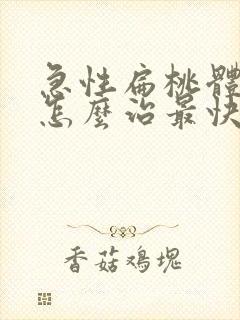 急性扁桃體
怎麼治最快
香菇鸡塊